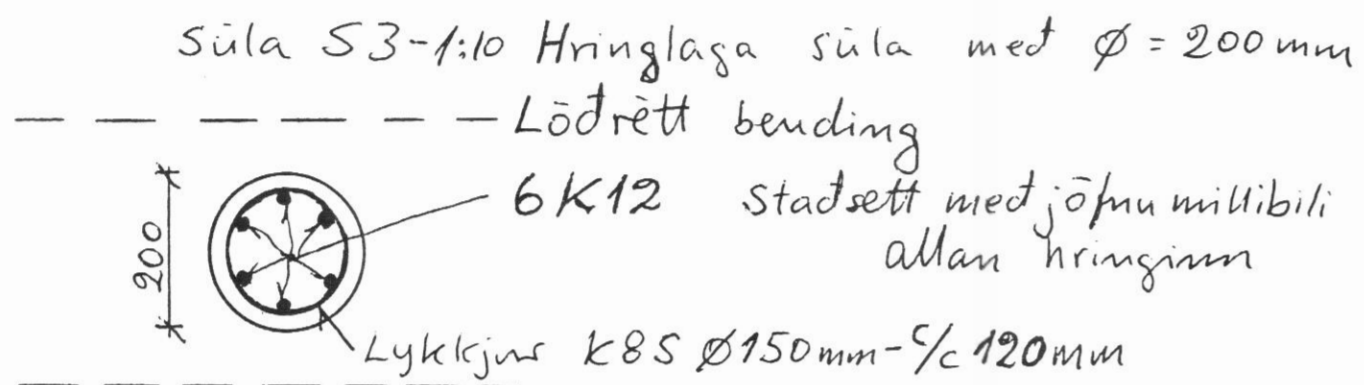 Súla S3-1:10 Hringlaga súla með Ø = 200 mm
Lóðrétt bending
6K12 Staðsett með jöfnu millibili
allan hringinn
200
Lykkjur K8S Ø150mm - c/c 120mm